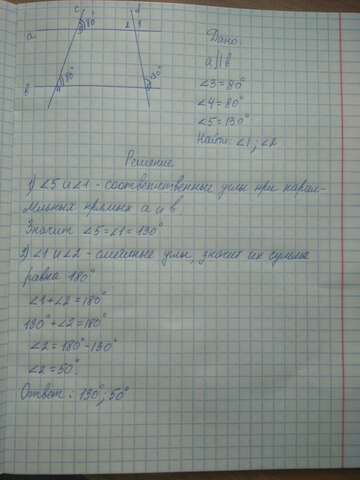 c d
80° 2 1
a
b 80° 130°
Дано:
a||b
∠3=80°
∠4=80°
∠5=130°
Найти: ∠1; ∠2
Решение
1) ∠5 и ∠1 - соответственные углы при парал-
лельных прямых a и b.
Значит ∠5=∠1=130°
2) ∠1 и ∠2 - смежные углы, значит их сумма
равна 180°
∠1+∠2=180°
130°+∠2=180°
∠2=180°-130°
∠2=50°.
Ответ: 130°; 50°